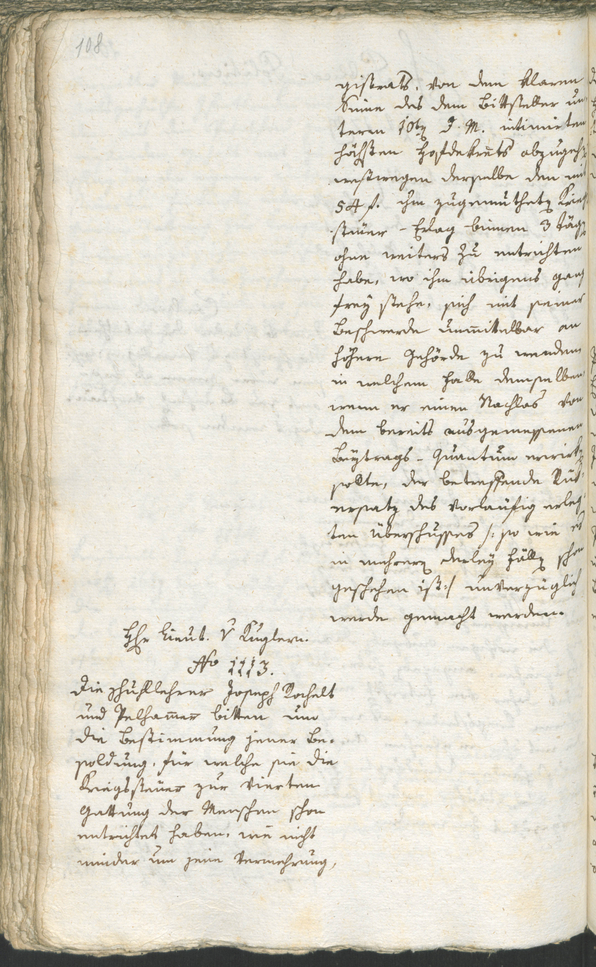 108
gistrats, von dem klaren
Sinne des dem Bittsteber un
term 10ty d. M. intimirten
höchsten Hofdekrets abzugeh
weßwegen derselbe den mit
54 f. ihm zugemuthety Krieg
steuer-Erlag binnen 3 Täg
ohne weiters zu entrichten
habe, wo ihm übrigens ganz
frey stehe, sich mit seiner
Beschwerde unmittelbar an
höhere Behörde zu wenden
in welchem Falle demselben
wenn er einen Nachlas von
dem bereits ausgemessenen
Beytrags-Quantum erwirk
sollte, der betreffende Rük
ersatz des vorläufig erleg
ten Überschusses /: so wie es
in mehrern derley Fälly schon
geschehen ist :/ unverzüglich
werde gemacht werden.
Hr Lieut. v Kuglern.
No 1113.
Die Schullehrer Joseph Rochelt
und Pelhamer bitten um
die Bestimmung jener Be-
soldung, für welche sie die
Kriegssteuer zur vierten
Gattung der Menschen schon
entrichtet haben, wie nicht
minder um jene Vermehrung,